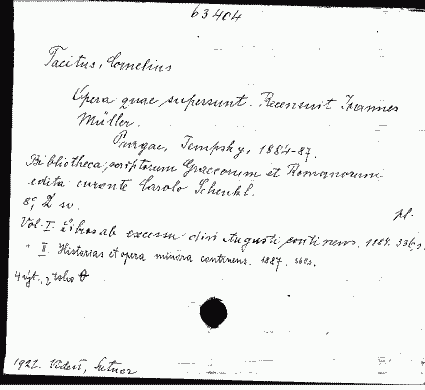 63404
Tacitus, Cornelius
Opera quae supersunt. Recensuit Joannes
Müller.
Purgae, Tempsky, 1884-87.
Bibliotheca scriptorum Graecorum et Romanorum
edita curante Carolo Schenkl.
8°, 2 w.
pl.
Vol. I. Libros ab excessu divi Augusti continens. 1884. 336
" II. Historias et opera minora continens. 1887.
1922. Vídeň,